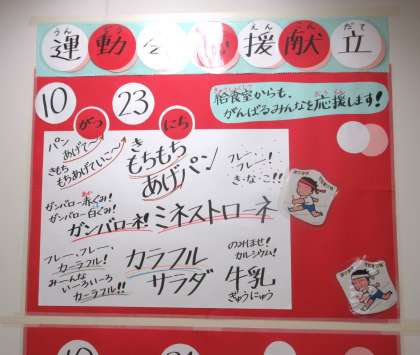 うん どう えん こん だて
運動会応援献立
10がつ23にち
給食室からも、
がんばるみんなを応援します!
パン
あげて〜
きもち
もちあげていこ〜
き
もちもち
あげパン
フレー、
フレー!
き・な・こ!!
ガンバロー赤ぐみ!
ガンバロー白ぐみ!
ガンバローネ!
ミネストローネ
フレー、フレー、
カーラフル!
みーんな
いーろいろ
カーラフル!!
カラフル
サラダ
のみほせ!
カルシウム!
牛乳
ぎゅうにゅう